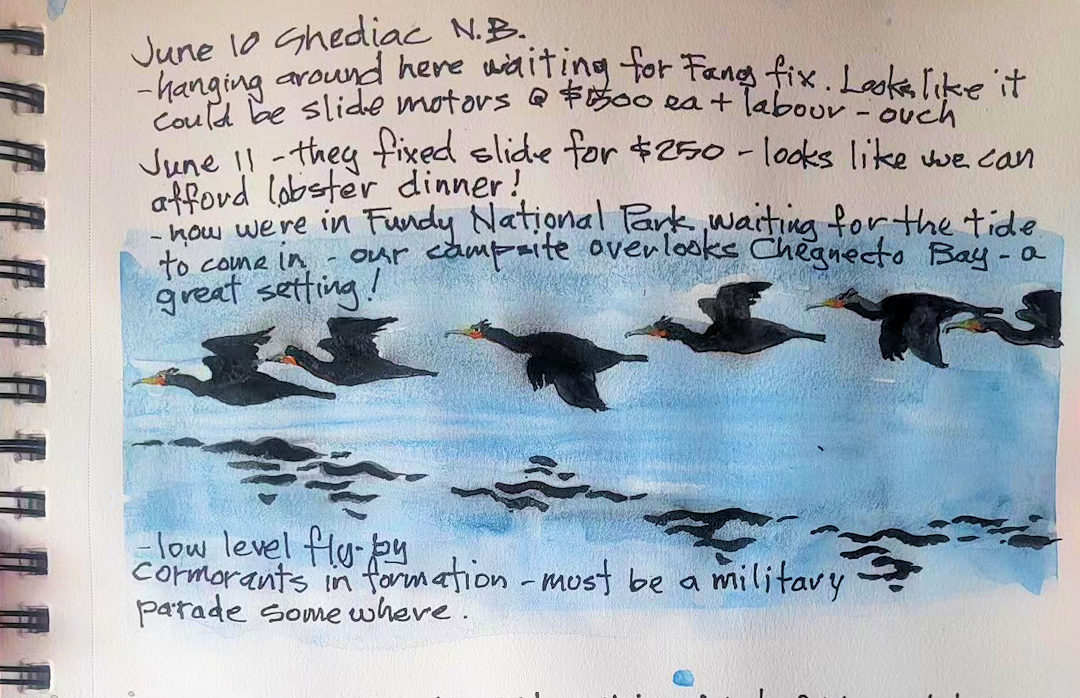 June 10 Shediac N.B.
-hanging around here waiting for Fang fix. Looks like it
could be slide motors @ $1500 ea + labour - ouch
June 11 - they fixed slide for $250 - looks like we can
afford lobster dinner!
- now were in Fundy National Park waiting for the tide
to come in - our campsite overlooks Chegnecto Bay - a
great setting!
-low level fly-by
cormorants in formation - must be a military
parade somewhere.